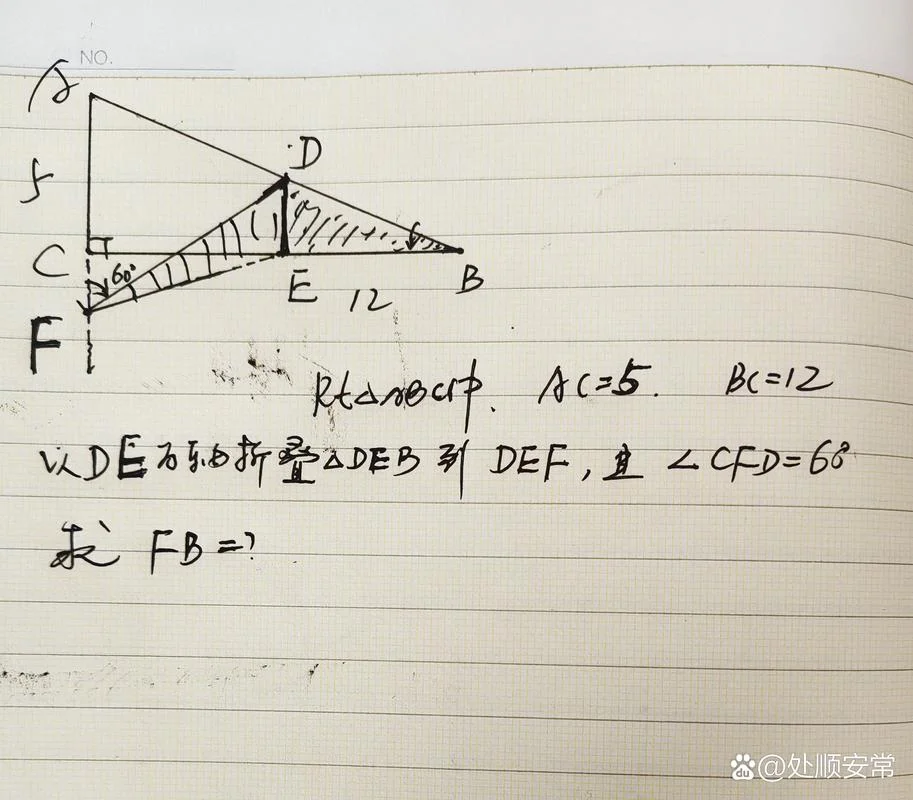 NO.
A
D
5
C
60°
E
12
B
F
Rt△ABC中. AC=5. BC=12
以DE为轴折叠△DEB到DEF,且∠CFD=60°
求FB=?
du @处顺安常